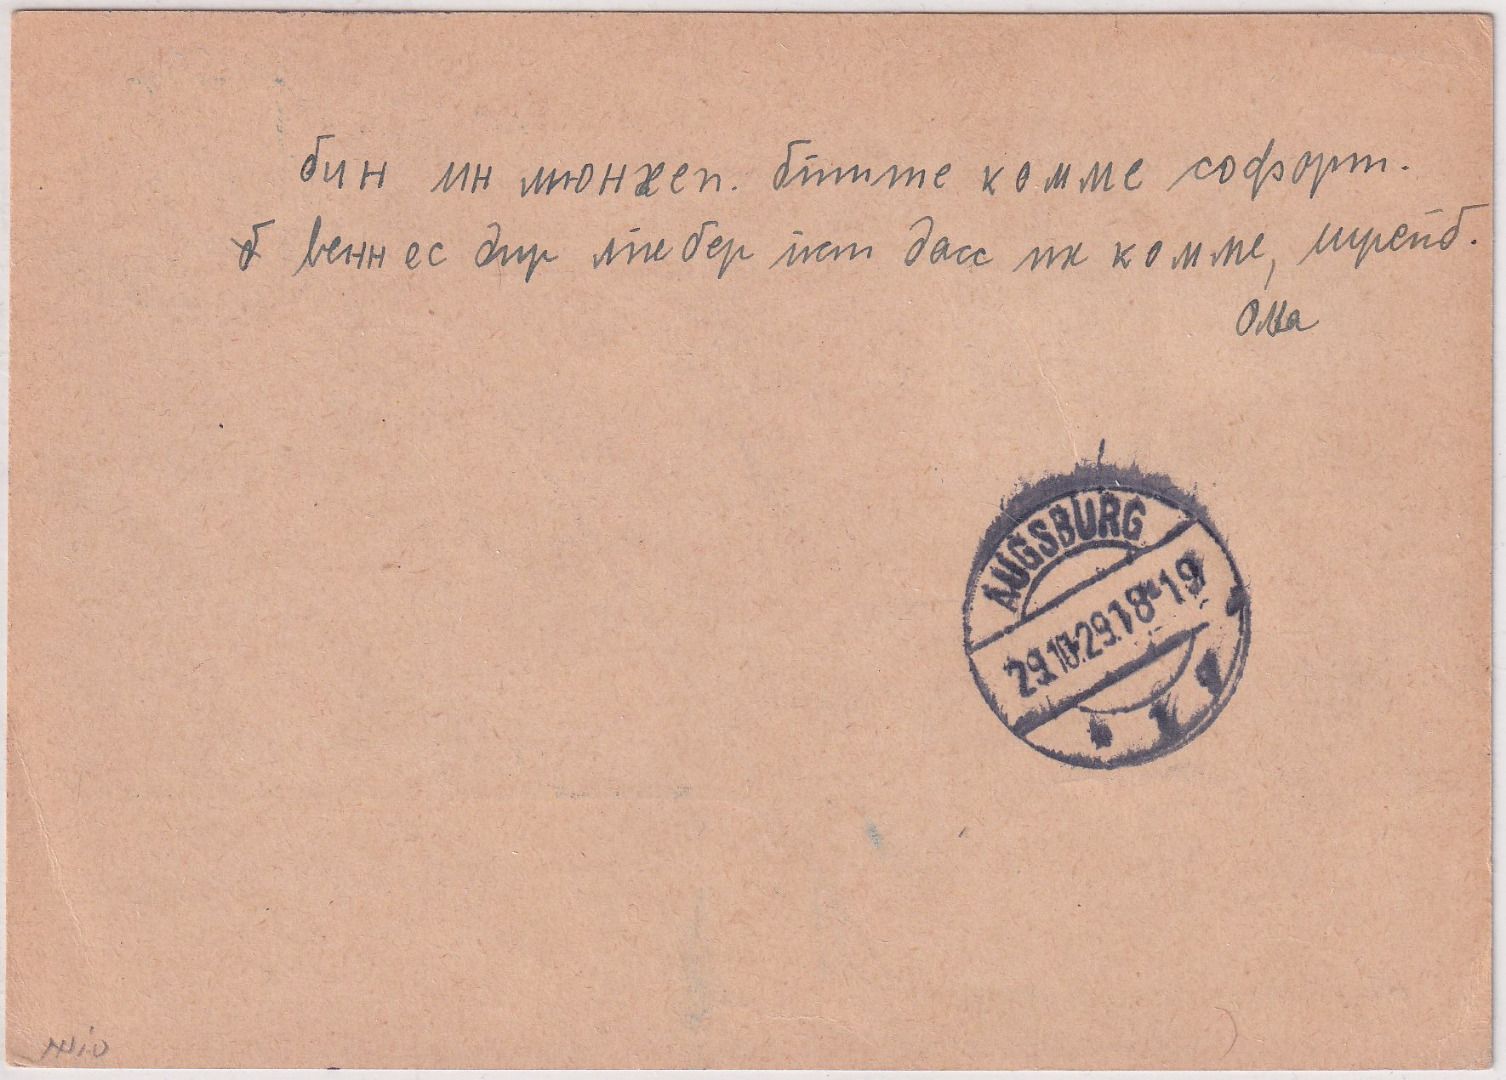 бин ин мюнхен. битте комме софорт.
веннес дир лиебер ист дасс их комме, шрейб.
ома
AUGSBURG
29.10.29.18-19